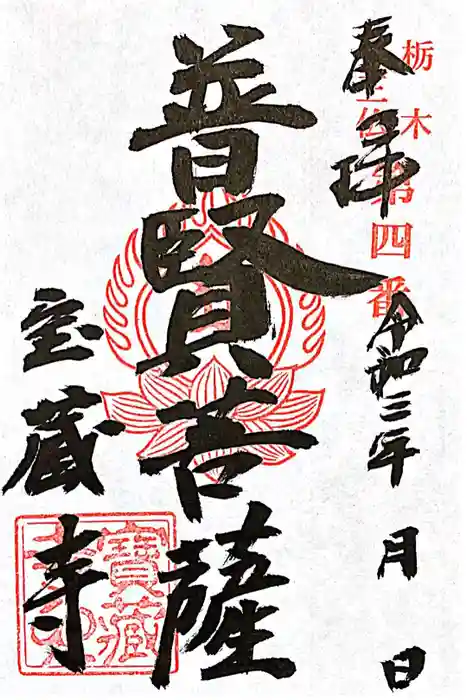 奉拝
栃木
十三仏第四番
令和三年 月 日
普賢菩薩
宝蔵寺
寶藏